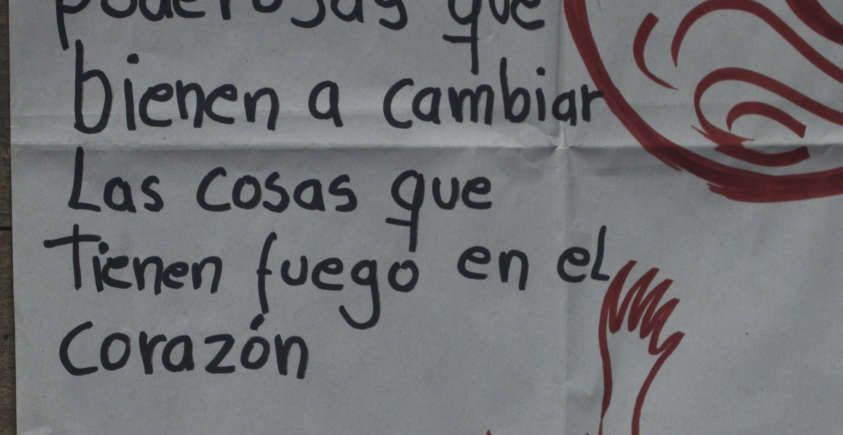 poderosas que
bienen a cambiar
Las cosas que
Tienen fuego en el
corazón